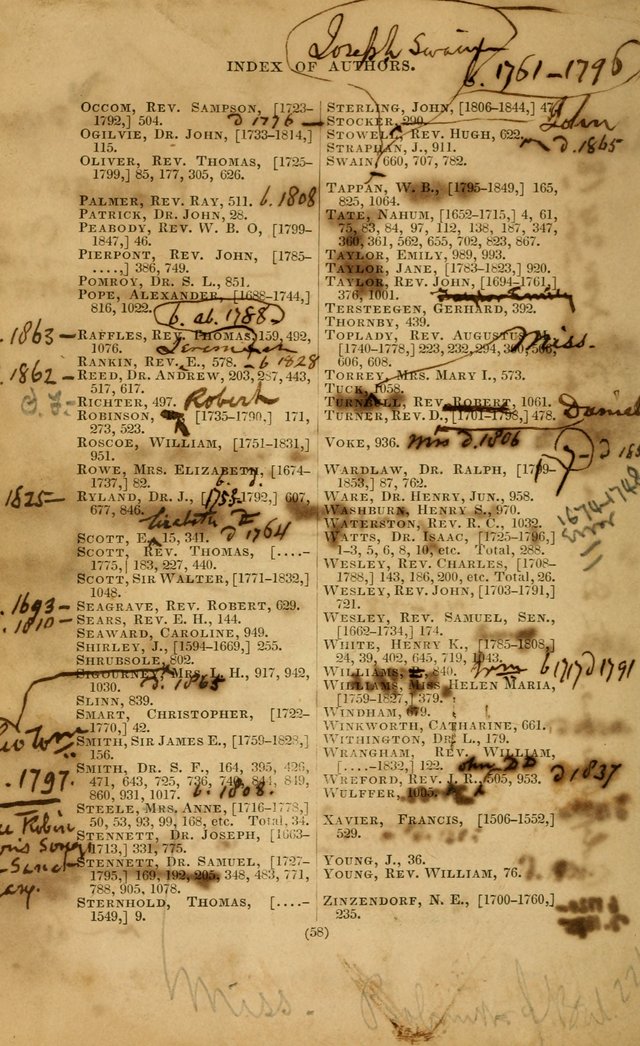 Joseph Swain
b. 1761-1796
INDEX OF AUTHORS.
OCCOM, REV. SAMPSON, [1723-
1792,] 504. d 1776 -
OGILVIE, DR. JOHN, [1733-1814,]
115.
OLIVER, REV. THOMAS, [1725-
1799,] 85, 177, 305, 626.
PALMER, REV. RAY, 511. b. 1808
PATRICK, DR. JOHN, 28.
PEABODY, REV. W. B. O, [1799-
1847,] 46.
PIERPONT, REV. JOHN, [1785-
....,] 386, 749.
POMROY, DR. S. L., 851.
POPE, ALEXANDER, [1688-1744,]
816, 1022. b. ab. 1788-
. 1863- RAFFLES, REV. THOMAS, 159, 492,
1076. Jeremiah
RANKIN, REV. E., 578. - b 1828
. 1862- REED, DR. ANDREW, 203, 287, 443,
517, 617.
RICHTER, 497. Robert
ROBINSON, [1735-1790,] 171,
273, 523.
ROSCOE, WILLIAM, [1751-1831,]
951.
ROWE, MRS. ELIZABETH, [1674-
1737,] 82.
1825- RYLAND, DR. J., [1753-1792,] 607,
677, 846.
Elizabeth
d 1764
SCOTT, E., 15, 341.
SCOTT, REV. THOMAS, [....-
1775,] 183, 227, 440.
SCOTT, SIR WALTER, [1771-1832,]
1048.
. 1693- SEAGRAVE, REV. ROBERT, 629.
. 1810- SEARS, REV. E. H., 144.
SEAWARD, CAROLINE, 949.
SHIRLEY, J., [1594-1669,] 255.
SHRUBSOLE, 802.
SIGOURNEY, MRS. L. H., 917, 942,
1030. d. 1865
SLINN, 839.
SMART, CHRISTOPHER, [1722-
1770,] 42.
SMITH, SIR JAMES E., [1759-1828,]
156.
. 1797.
SMITH, DR. S. F., 164, 395, 426,
471, 643, 725, 736, 740, 844, 849,
860, 931, 1017. b. 1808.
STEELE, MRS. ANNE, [1716-1778,]
50, 53, 93, 99, 168, etc. Total, 34.
STENNETT, DR. JOSEPH, [1663-
1713,] 331, 775.
STENNETT, DR. SAMUEL, [1727-
1795,] 169, 192, 205, 348, 483, 771,
788, 905, 1078.
STERNHOLD, THOMAS, [....-
1549,] 9.
STERLING, JOHN, [1806-1844,] 47
STOCKER, 290.
John
STOWELL, REV. HUGH, 622.
d. 1865
STRAPHAN, J., 911.
SWAIN, 660, 707, 782.
TAPPAN, W. B., [1795-1849,] 165,
825, 1064.
TATE, NAHUM, [1652-1715,] 4, 61,
75, 83, 84, 97, 112, 138, 187, 347,
360, 361, 562, 655, 702, 823, 867.
TAYLOR, EMILY, 989, 993.
TAYLOR, JANE, [1783-1823,] 920.
TAYLOR, REV. JOHN, [1694-1761,]
376, 1001. Taylor Emily
TERSTEEGEN, GERHARD, 392.
THORNBY, 439.
TOPLADY, REV. AUGUSTUS
[1740-1778,] 223, 232, 294, 360, 506,
606, 608.
Miss.
TORREY, MRS. MARY I., 573.
TUCK, 1058.
TURNBULL, REV. ROBERT, 1061.
TURNER, REV. D., [1701-1798,] 478. Daniel
VOKE, 936. Mrs d. 1806
WARDLAW, DR. RALPH, [1799-
1853,] 87, 762.
WARE, DR. HENRY, JUN., 958.
WASHBURN, HENRY S., 970.
WATERSTON, REV. R. C., 1032.
WATTS, DR. ISAAC, [1725-1796,]
1-3, 5, 6, 8, 10, etc. Total, 288.
1674-1748
Error
WESLEY, REV. CHARLES, [1708-
1788,] 143, 186, 200, etc. Total, 26.
WESLEY, REV. JOHN, [1703-1791,]
721.
WESLEY, REV. SAMUEL, SEN.,
[1662-1734,] 174.
WHITE, HENRY K., [1785-1808,]
24, 39, 402, 645, 719, 1043.
WILLIAMS, 840. Wm b 1717 d 1791
WILLIAMS, MISS HELEN MARIA,
[1759-1827,] 379.
WINDHAM, 679.
WINKWORTH, CATHARINE, 661.
WITHINGTON, DR. L., 179.
WRANGHAM, REV. WILLIAM,
[....-1832,] 122. John DD
WREFORD, REV. J. R., 505, 953. d 1837
WULFFER, 1005.
XAVIER, FRANCIS, [1506-1552,]
529.
YOUNG, J., 36.
YOUNG, REV. WILLIAM, 76.
ZINZENDORF, N. E., [1700-1760,]
235.
(58)
Miss. Robinson